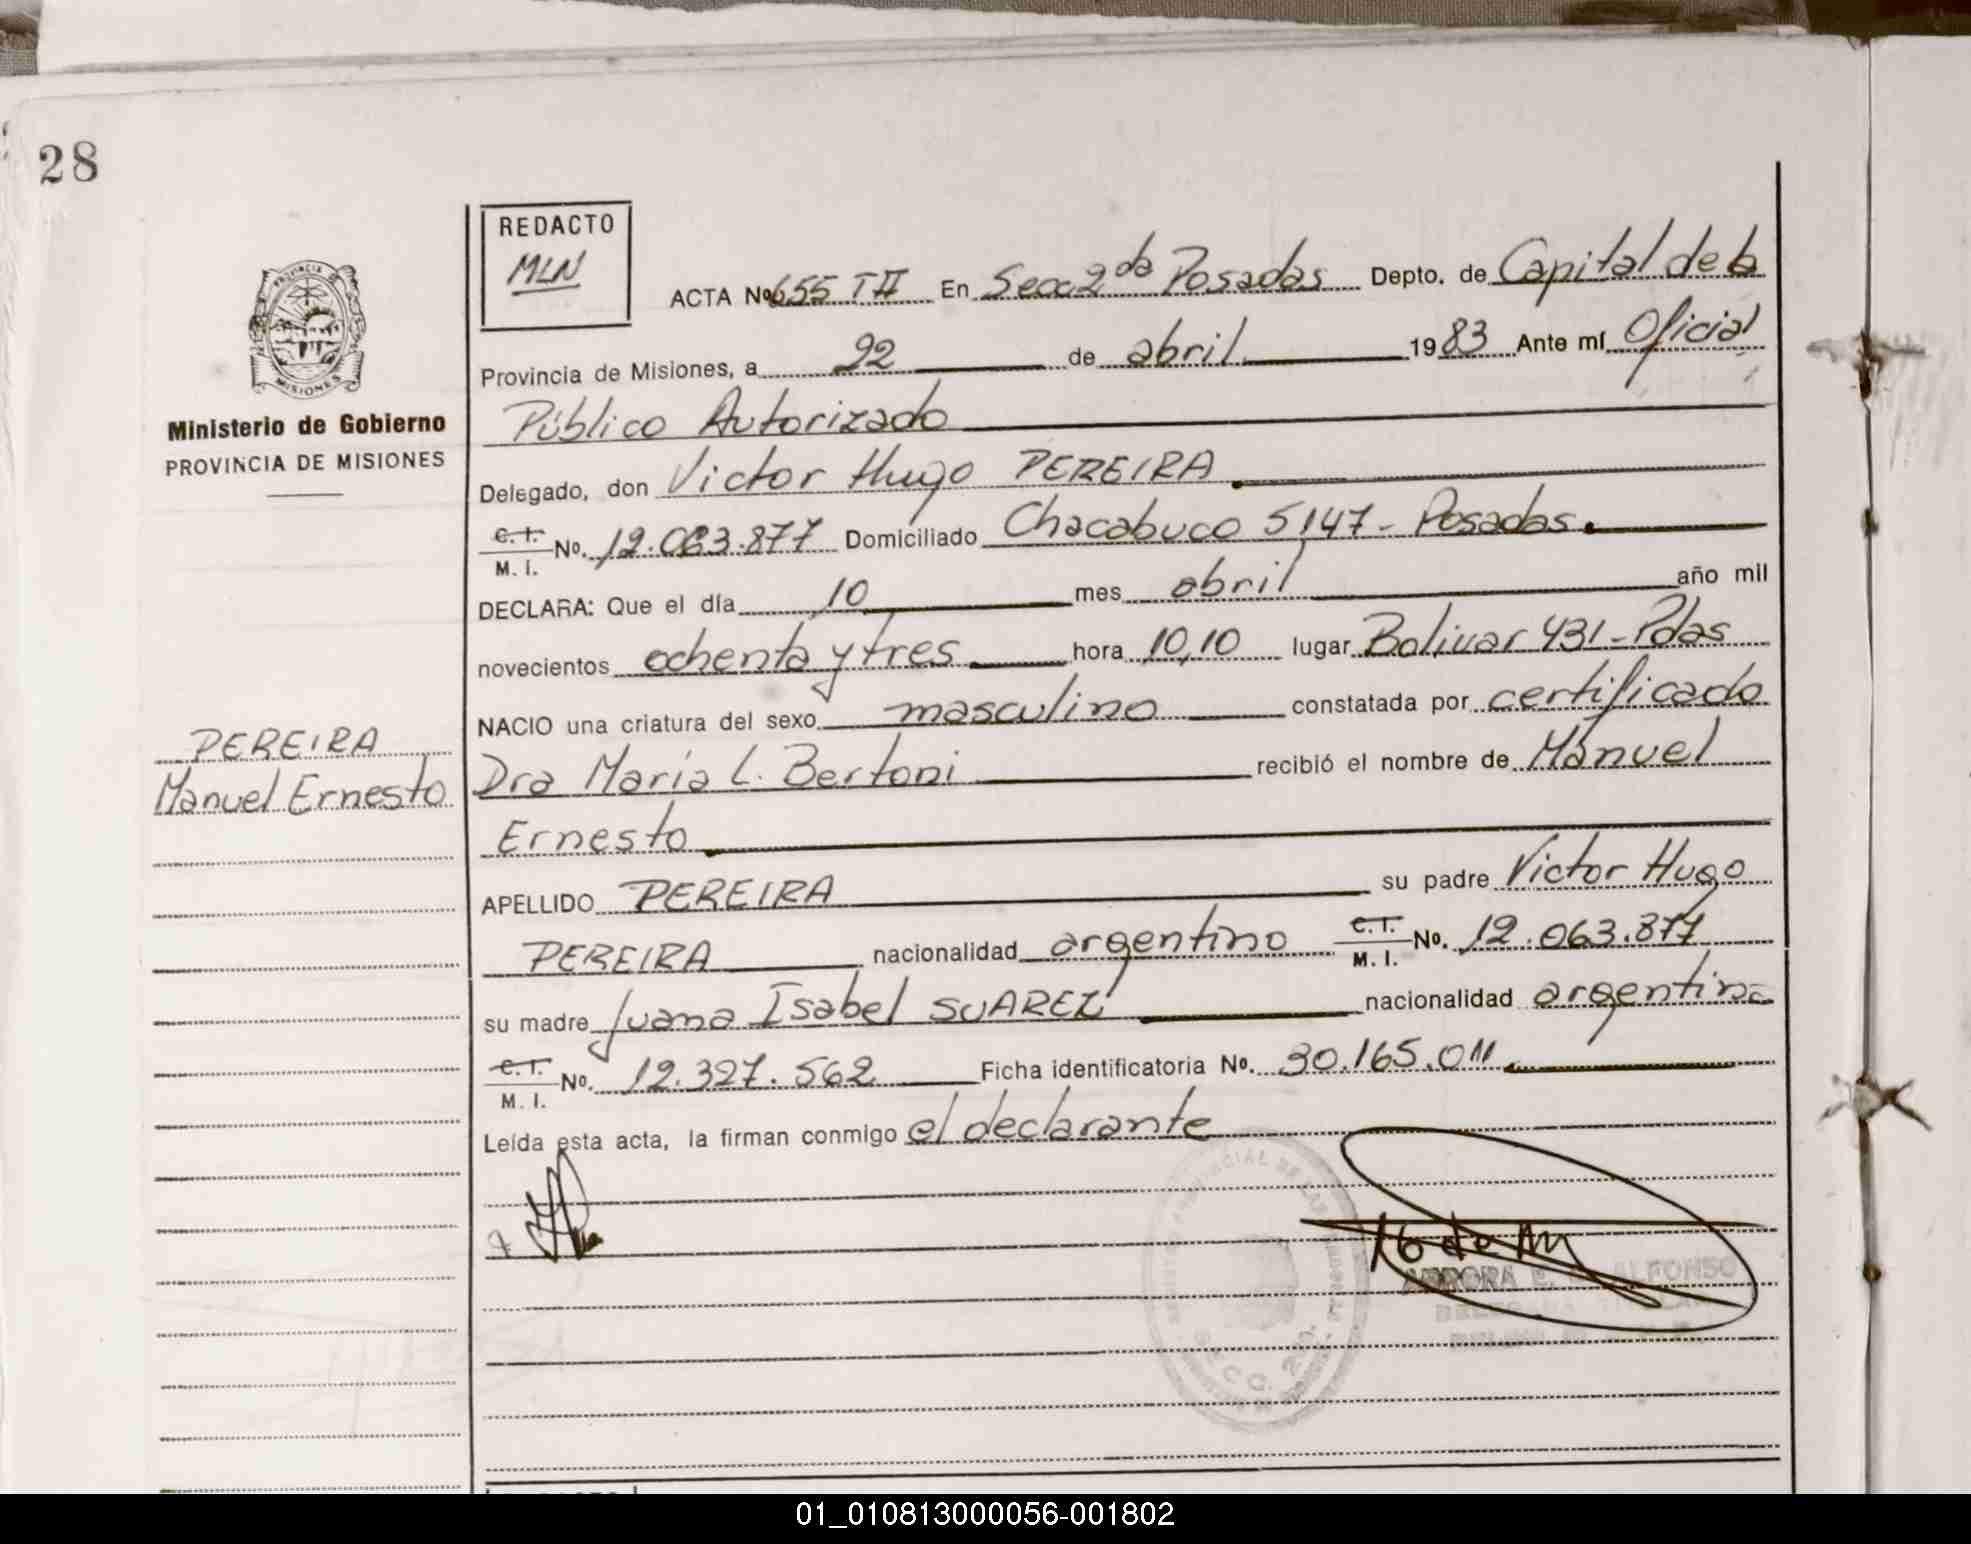 28
REDACTO
MLN
PROVINCIA DE
MISIONES
Ministerio de Gobierno
PROVINCIA DE MISIONES
ACTA No 655 TII En Secc 2da Posadas Depto. de Capital de la
Provincia de Misiones, a 22 de abril 1983 Ante mí Oficial
Público Autorizado
Delegado, don Victor Hugo PEREIRA
C.I. M.I. No. 12.063.877 Domiciliado Chacabuco 5147 - Posadas.
DECLARA: Que el día 10 mes abril año mil
novecientos ochenta y tres hora 10,10 lugar Bolivar 431 - Pdas
NACIO una criatura del sexo masculino constatada por certificado
PEREIRA
Manuel Ernesto
Dra María L. Bertoni recibió el nombre de Manuel
Ernesto
APELLIDO PEREIRA su padre Victor Hugo
PEREIRA nacionalidad argentino C.I. M.I. No. 12.063.877
su madre Juana Isabel SUAREZ nacionalidad argentina
C.I. M.I. No. 12.327.562 Ficha identificatoria No. 30.165.011
Leída esta acta, la firman conmigo el declarante
ALFONSO
SECC. 2da.
01_010813000056-001802